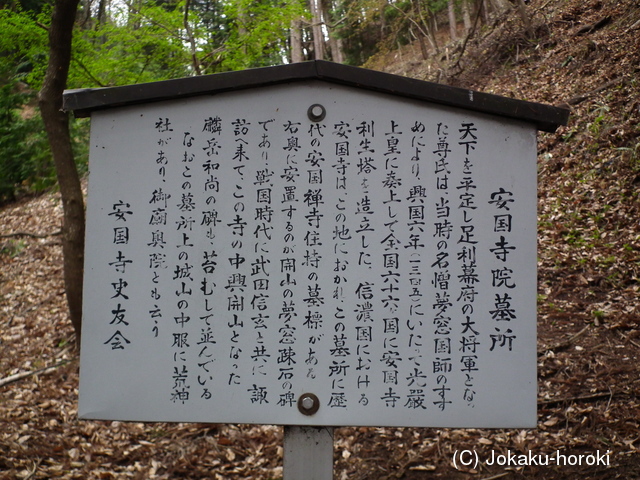 安国寺院墓所
天下を平定し足利幕府の大将軍となっ
た尊氏は、当時の名僧夢窓国師のすす
めにより、興国六年(一三四五)にいたって光厳
上皇に奏上して全国六十六ヶ国に安国寺
利生塔を造立した。信濃国における
安国寺は、この地におかれ、この墓所に歴
代の安国禅寺住持の墓標がある
右奥に安置するのが開山の夢窓疎石の碑
であり、戦国時代に武田信玄と共に諏
訪へ来て、この寺の中興開山となった
麟岳和尚の碑も苔むして並んでいる
なおこの墓所上の城山の中腹に荒神
社があり、御廟奥院とも云う
安国寺史友会
(C) Jokaku-horoki